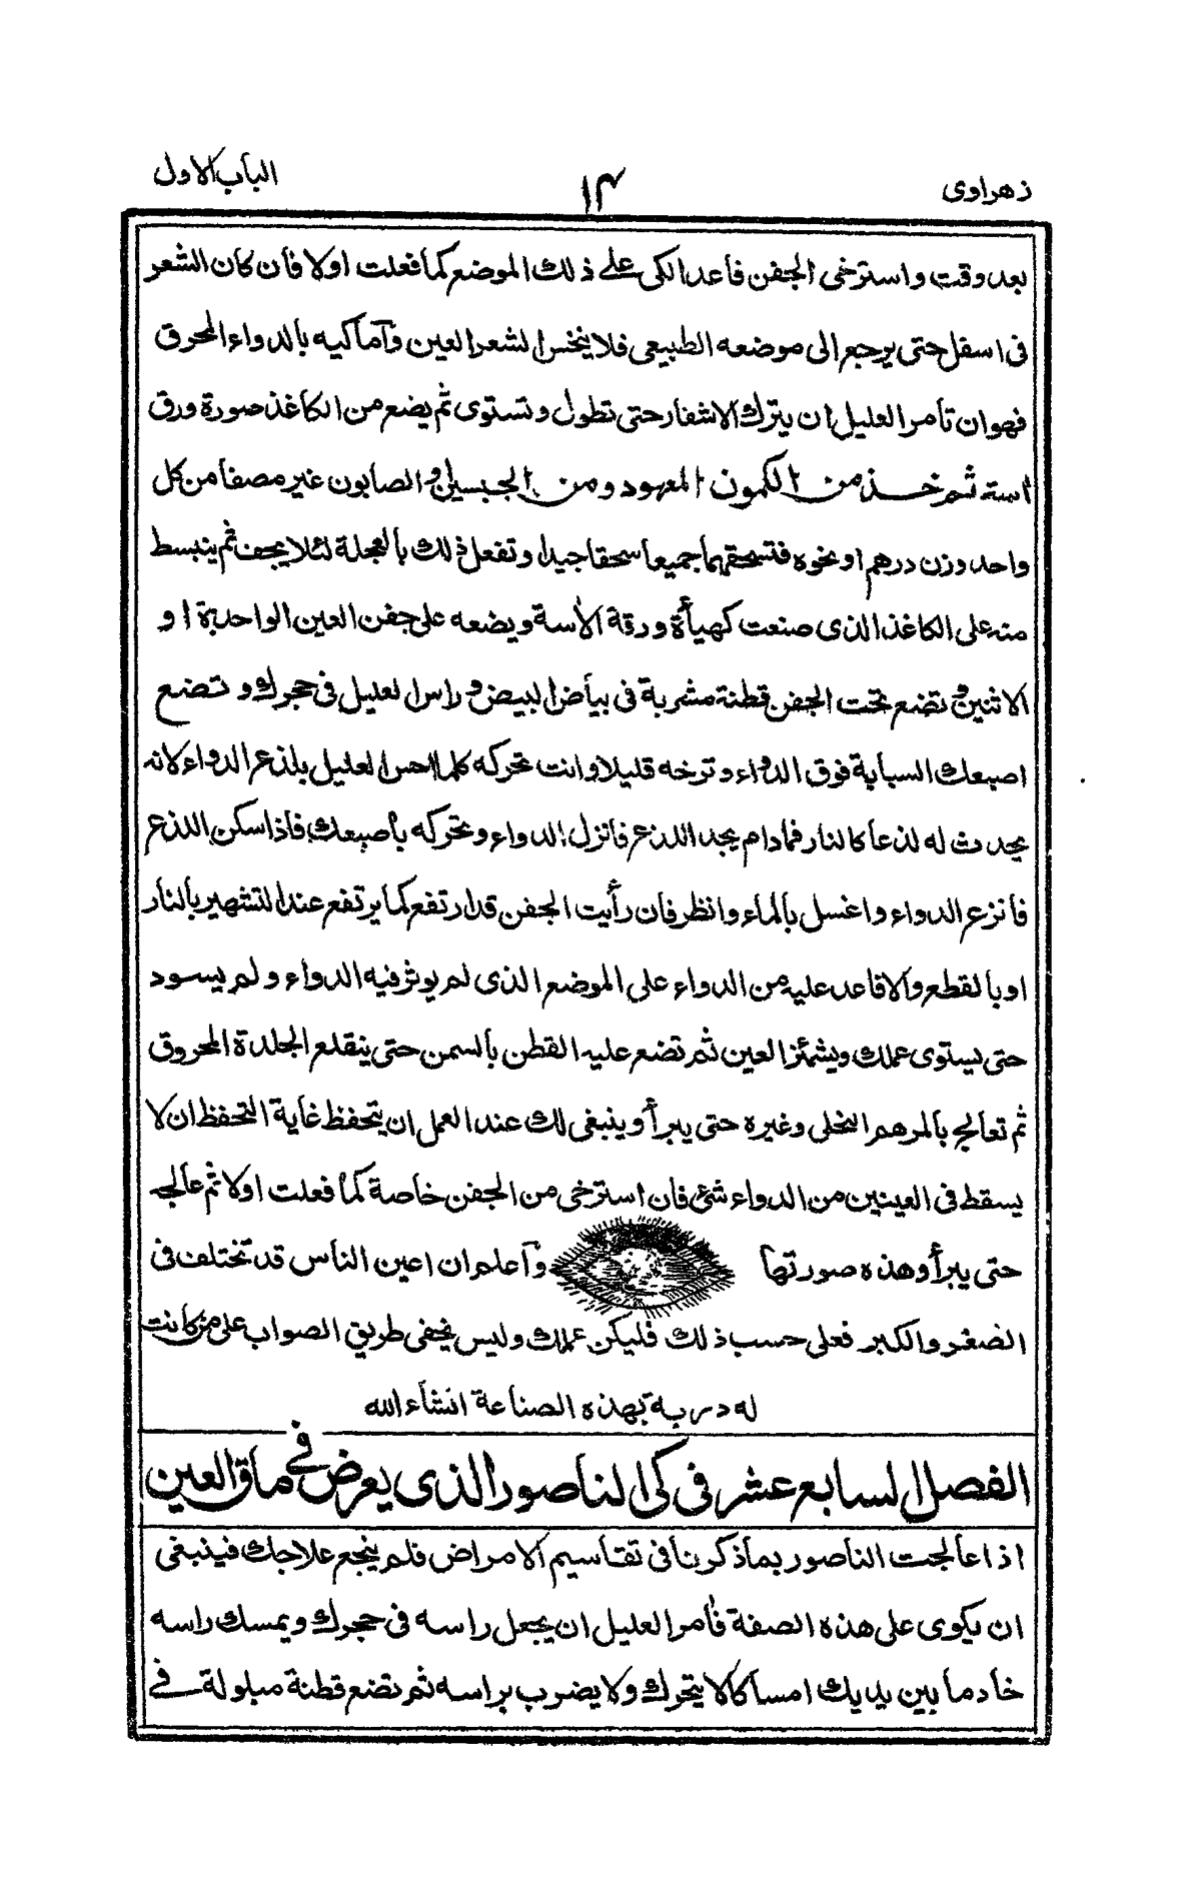 زهراوى
١٤
الباب الاول
بعد وقت واسترخى الجفن فاعد الكى على ذلك الموضع كما فعلت اولا فان كان الشعر
فى اسفل حتى يرجع الى موضعه الطبيعى فلا ينخس الشعر العين وأما كيه بالدواء المحرق
فهو ان تأمر العليل ان يترك الاشفار حتى تطول وتستوى ثم يضع من الكاغذ صورة ورق
اسة ثم خذ من الكمون المعهود ومن الجبسيل والصابون غير مصفا من كل
واحد وزن درهم او نحوه فتسحقهما جميعا سحقا جيدا وتفعل ذلك بالعجلة لئلا يجف ثم ينبسط
منه على الكاغذ الذى صنعت كهيأة ورقة الأسة ويضعه على جفن العين الواحدة او
الاثنين وتضع تحت الجفن قطنة مشربة فى بياض البيض وراس العليل فى حجرك وتضع
اصبعك السبابة فوق الدواء وترخه قليلا وانت تحركه كلما احس العليل بلذع الدواء لانه
يحدث له لذعا كالنار فما دام يجد اللذع فانزل الدواء وتحركه باصبعك فاذا سكن اللذع
فانزع الدواء واغسل بالماء وانظر فان رأيت الجفن قد ارتفع كما يرتفع عند التشهير بالنار
او بالقطع والا فاعد عليه من الدواء على الموضع الذى لم يوثر فيه الدواء ولم يسود
حتى يستوى عملك ويشمئز العين ثم تضع عليه القطن بالسمن حتى ينقلع الجلدة المحروق
ثم تعالج بالمرهم النخلى وغيره حتى يبرأ وينبغى لك عند العمل ان يتحفظ غاية التحفظ ان لا
يسقط فى العينين من الدواء شئ فان استرخى من الجفن خاصة كما فعلت اولا ثم عالجه
حتى يبرأ وهذه صورتها وآعلم ان اعين الناس قد تختلف فى
الضغر والكبر فعلى حسب ذلك فليكن عملك وليس يخفى طريق الصواب على من كانت
له دربة بهذه الصناعة انشاء الله
الفصل السابع عشر فى كى الناصور الذى يعرض فى ماق العين
اذا عالجت الناصور بما ذكرنا فى تقاسيم الامراض فلم ينجع علاجك فينبغى
ان يكوى على هذه الصفة فأمر العليل ان يجعل راسه فى حجرك ويمسك راسه
خادما بين يديك امساكا لا يتحرك ولا يضرب براسه ثم تضع قطنة مبلولة فى